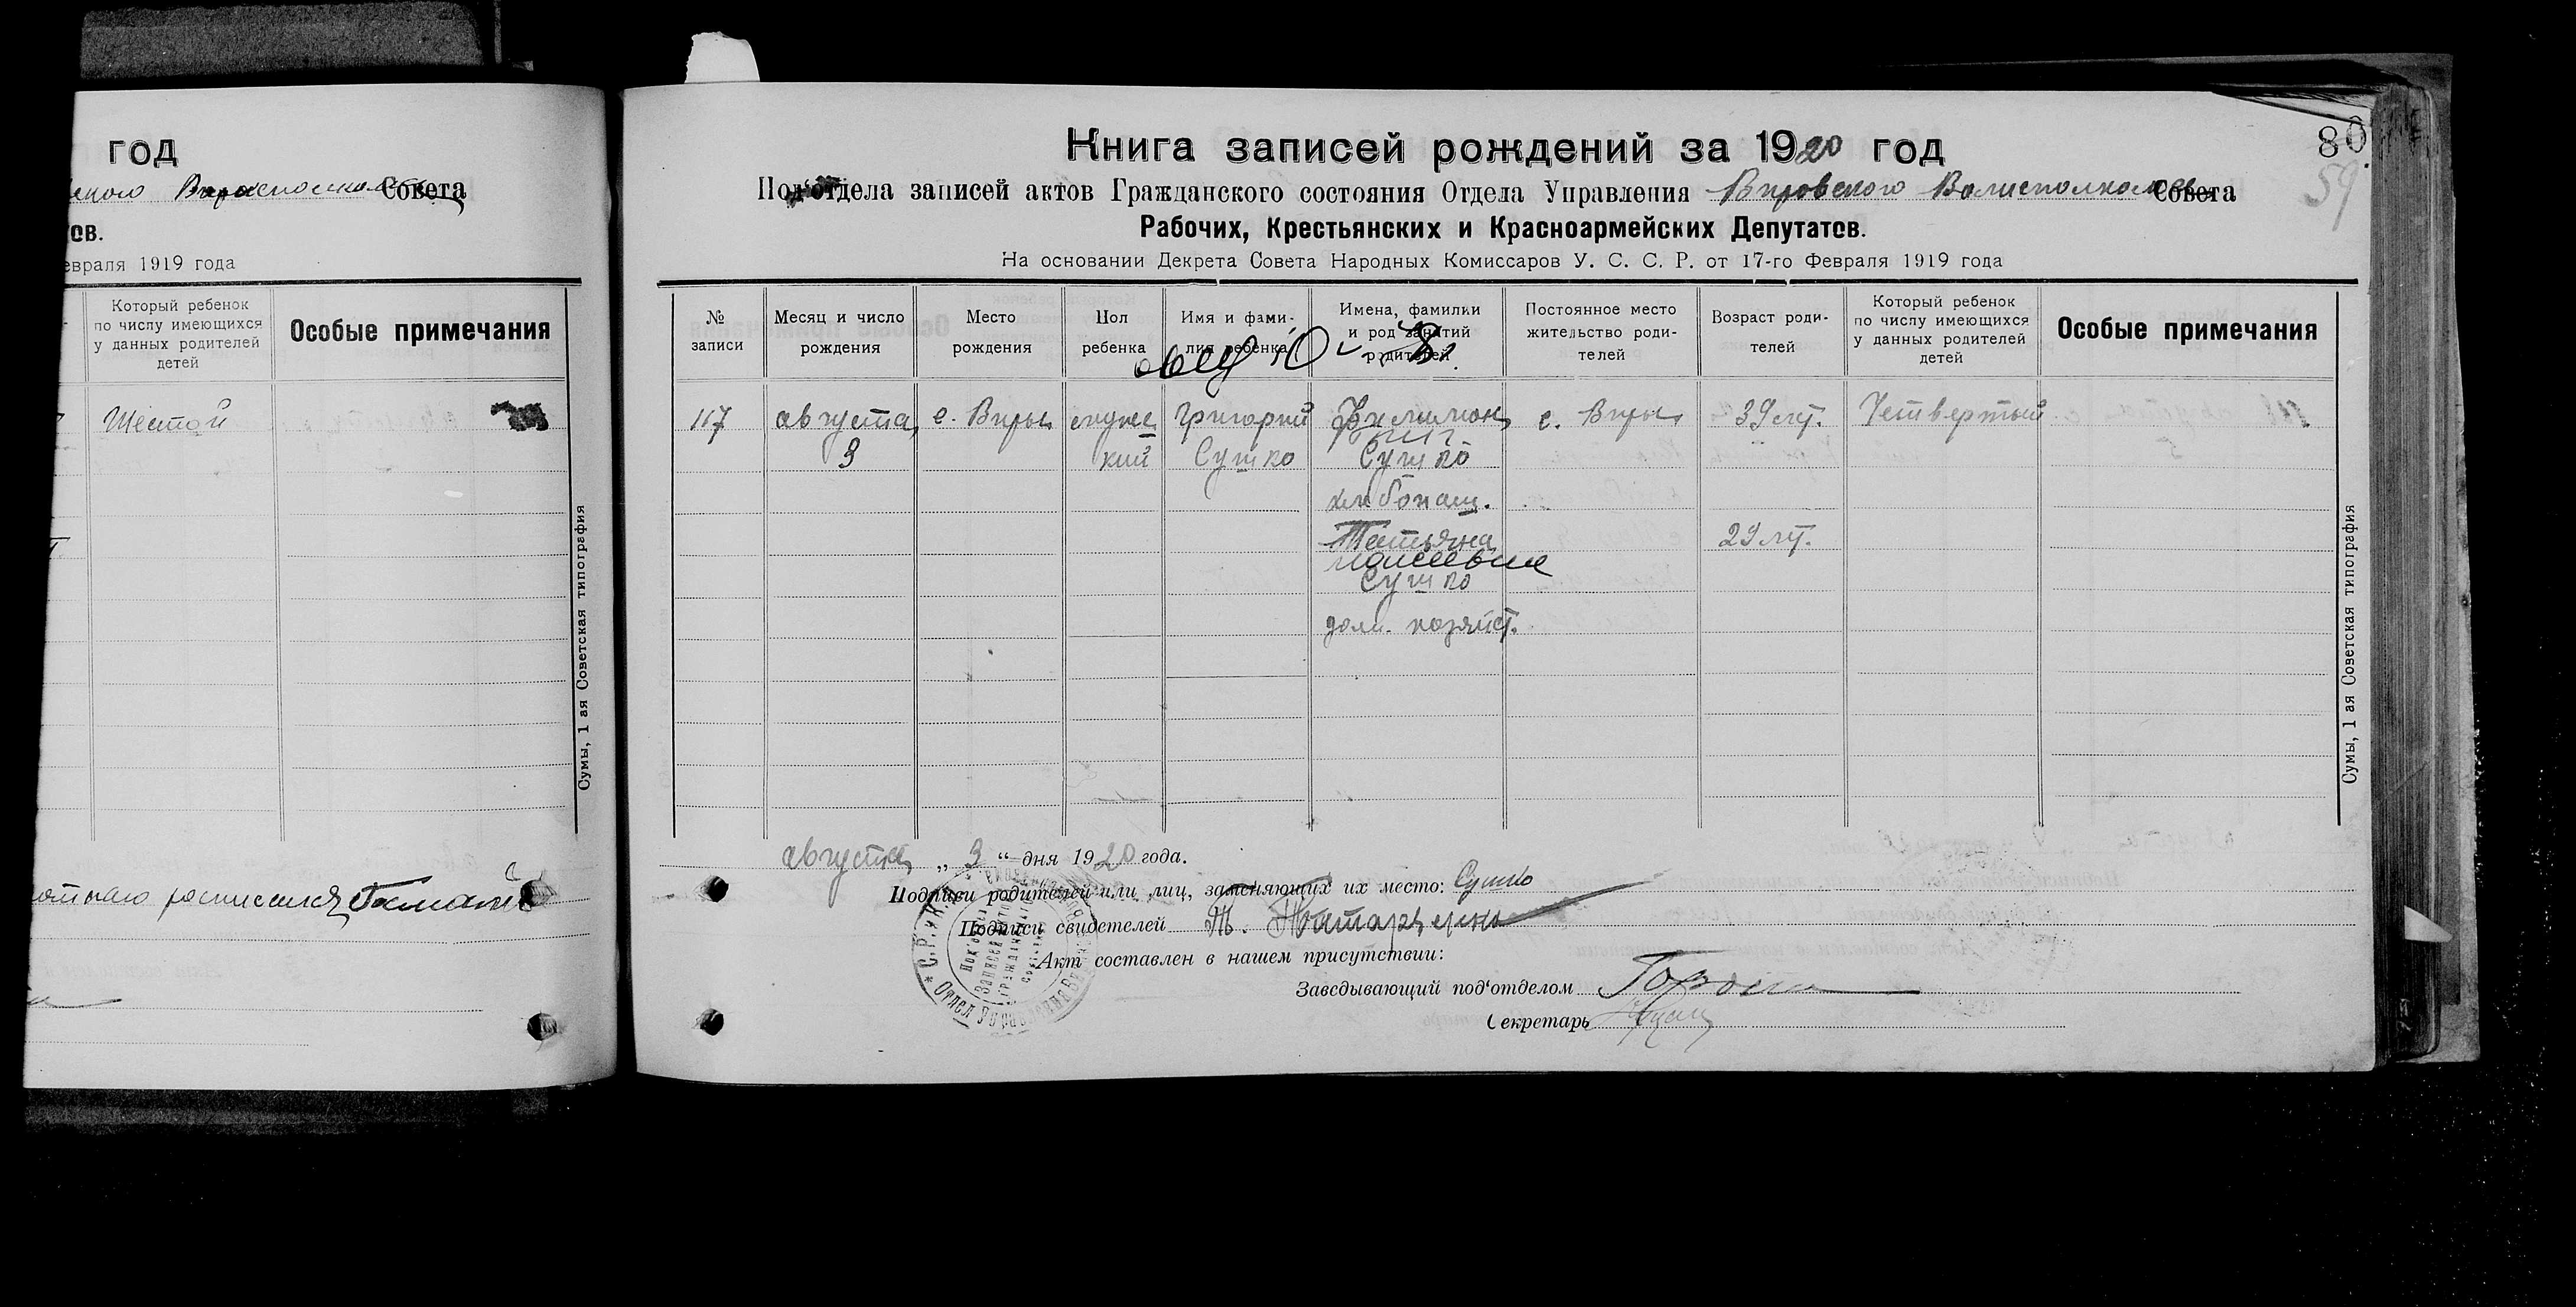 год
Совета
ов.
евраля 1919 года
Который ребенок
по числу имеющихся
у данных родителей
детей
Особые примечания
Шестой
Сумы, 1 ая Советская типография
80
59
Книга записей рождений за 1920 год
Под'отдела записей актов Гражданского состояния Отдела Управления Вировского Волисполкома Совета
Рабочих, Крестьянских и Красноармейских Депутатов.
На основании Декрета Совета Народных Комиссаров У. С. С. Р. от 17-го Февраля 1919 года
№
записи
Месяц и число
рождения
Место
рождения
Пол
ребенка
Имя и фами-
лия ребенка
Имена, фамилии
и род занятий
родителей
Постоянное место
жительство роди-
телей
Возраст роди-
телей
Который ребенок
по числу имеющихся
у данных родителей
детей
Особые примечания
117
августа
3
с. Виры
муже
ский
Григорий
Сушко
Филимон
Сушко
хлібопаш.
Татьяна
Моисеевна
Сушко
дом. хозяйст.
с. Виры
39 лт.
29 лт.
Четвертый
Сумы, 1 ая Советская типография
августа „ 3 “ дня 1920 года.
Подписи родителей или лиц, заменяющих их место: Сушко
Подписи свидетелей Т.
Акт составлен в нашем присутствии:
Заведывающий под'отделом
Секретарь